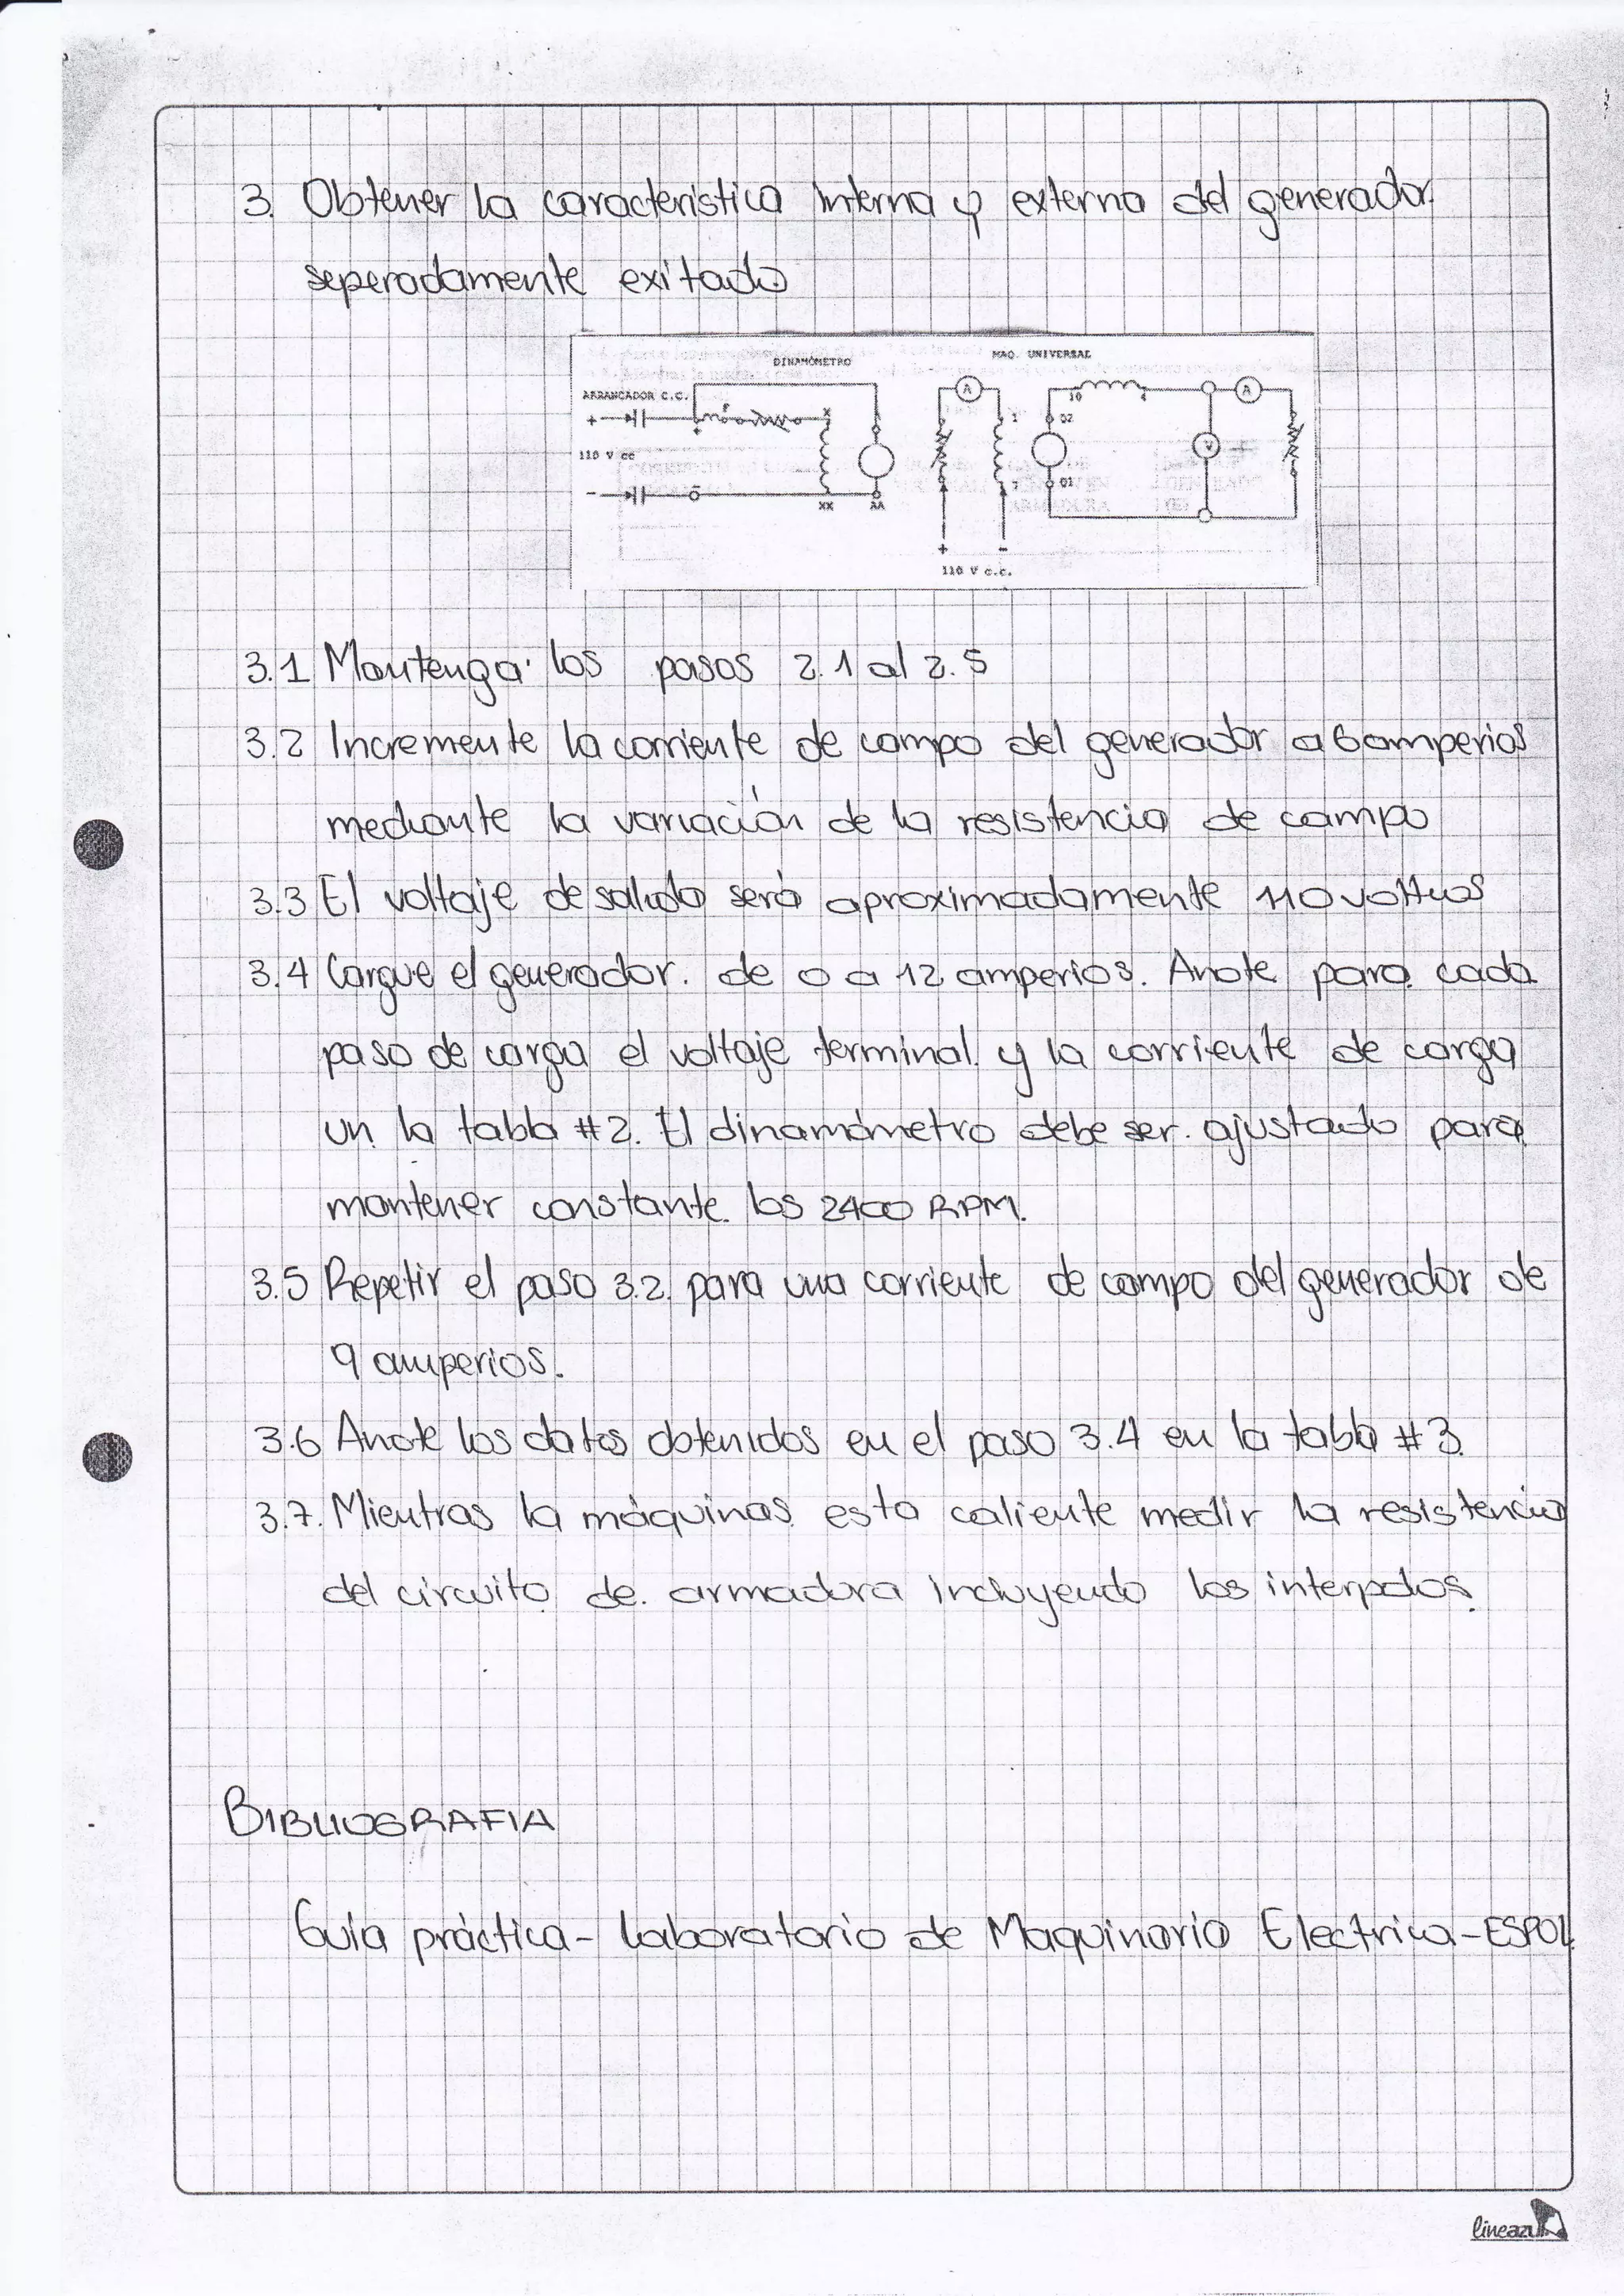 3. Obtener la caracteristica interna y externa del generador
seperadamente exitado
DINAMÓMETRO
MAQ. UNIVERSAL
ARRANCADOR C.C.
+
F
X
A
10
4
A
+
1
D2
110 V cc
V
-
-
7
D1
XX
AA
+
-
110 V c.c.
3.1 Mantenga los pasos 2.1 al 2.5
3.2 Incremente la corriente de campo del generador a 6 amperios
mediante la variación de la resistencia de campo
3.3 El voltaje de salida será aproximadamente 110 voltios
3.4 Cargue el generador. de 0 a 12 amperios. Anote para cada
paso de carga el voltaje terminal y la corriente de carga
un la tabla #2. El dinamómetro debe ser ajustado para
mantener constante los 2400 RPM.
3.5 Repetir el paso 3.2. para una corriente de campo del generador de
9 amperios.
3.6 Anote los datos obtenidos en el paso 3.4 en la tabla #3.
3.7. Mientras la máquinas esta caliente medir la resistencia
del circuito de armadura incluyendo los interpolos.
BIBLIOGRAFIA
Guía práctica - Laboratorio de Maquinaria Electrica - ESPOL
lineazul